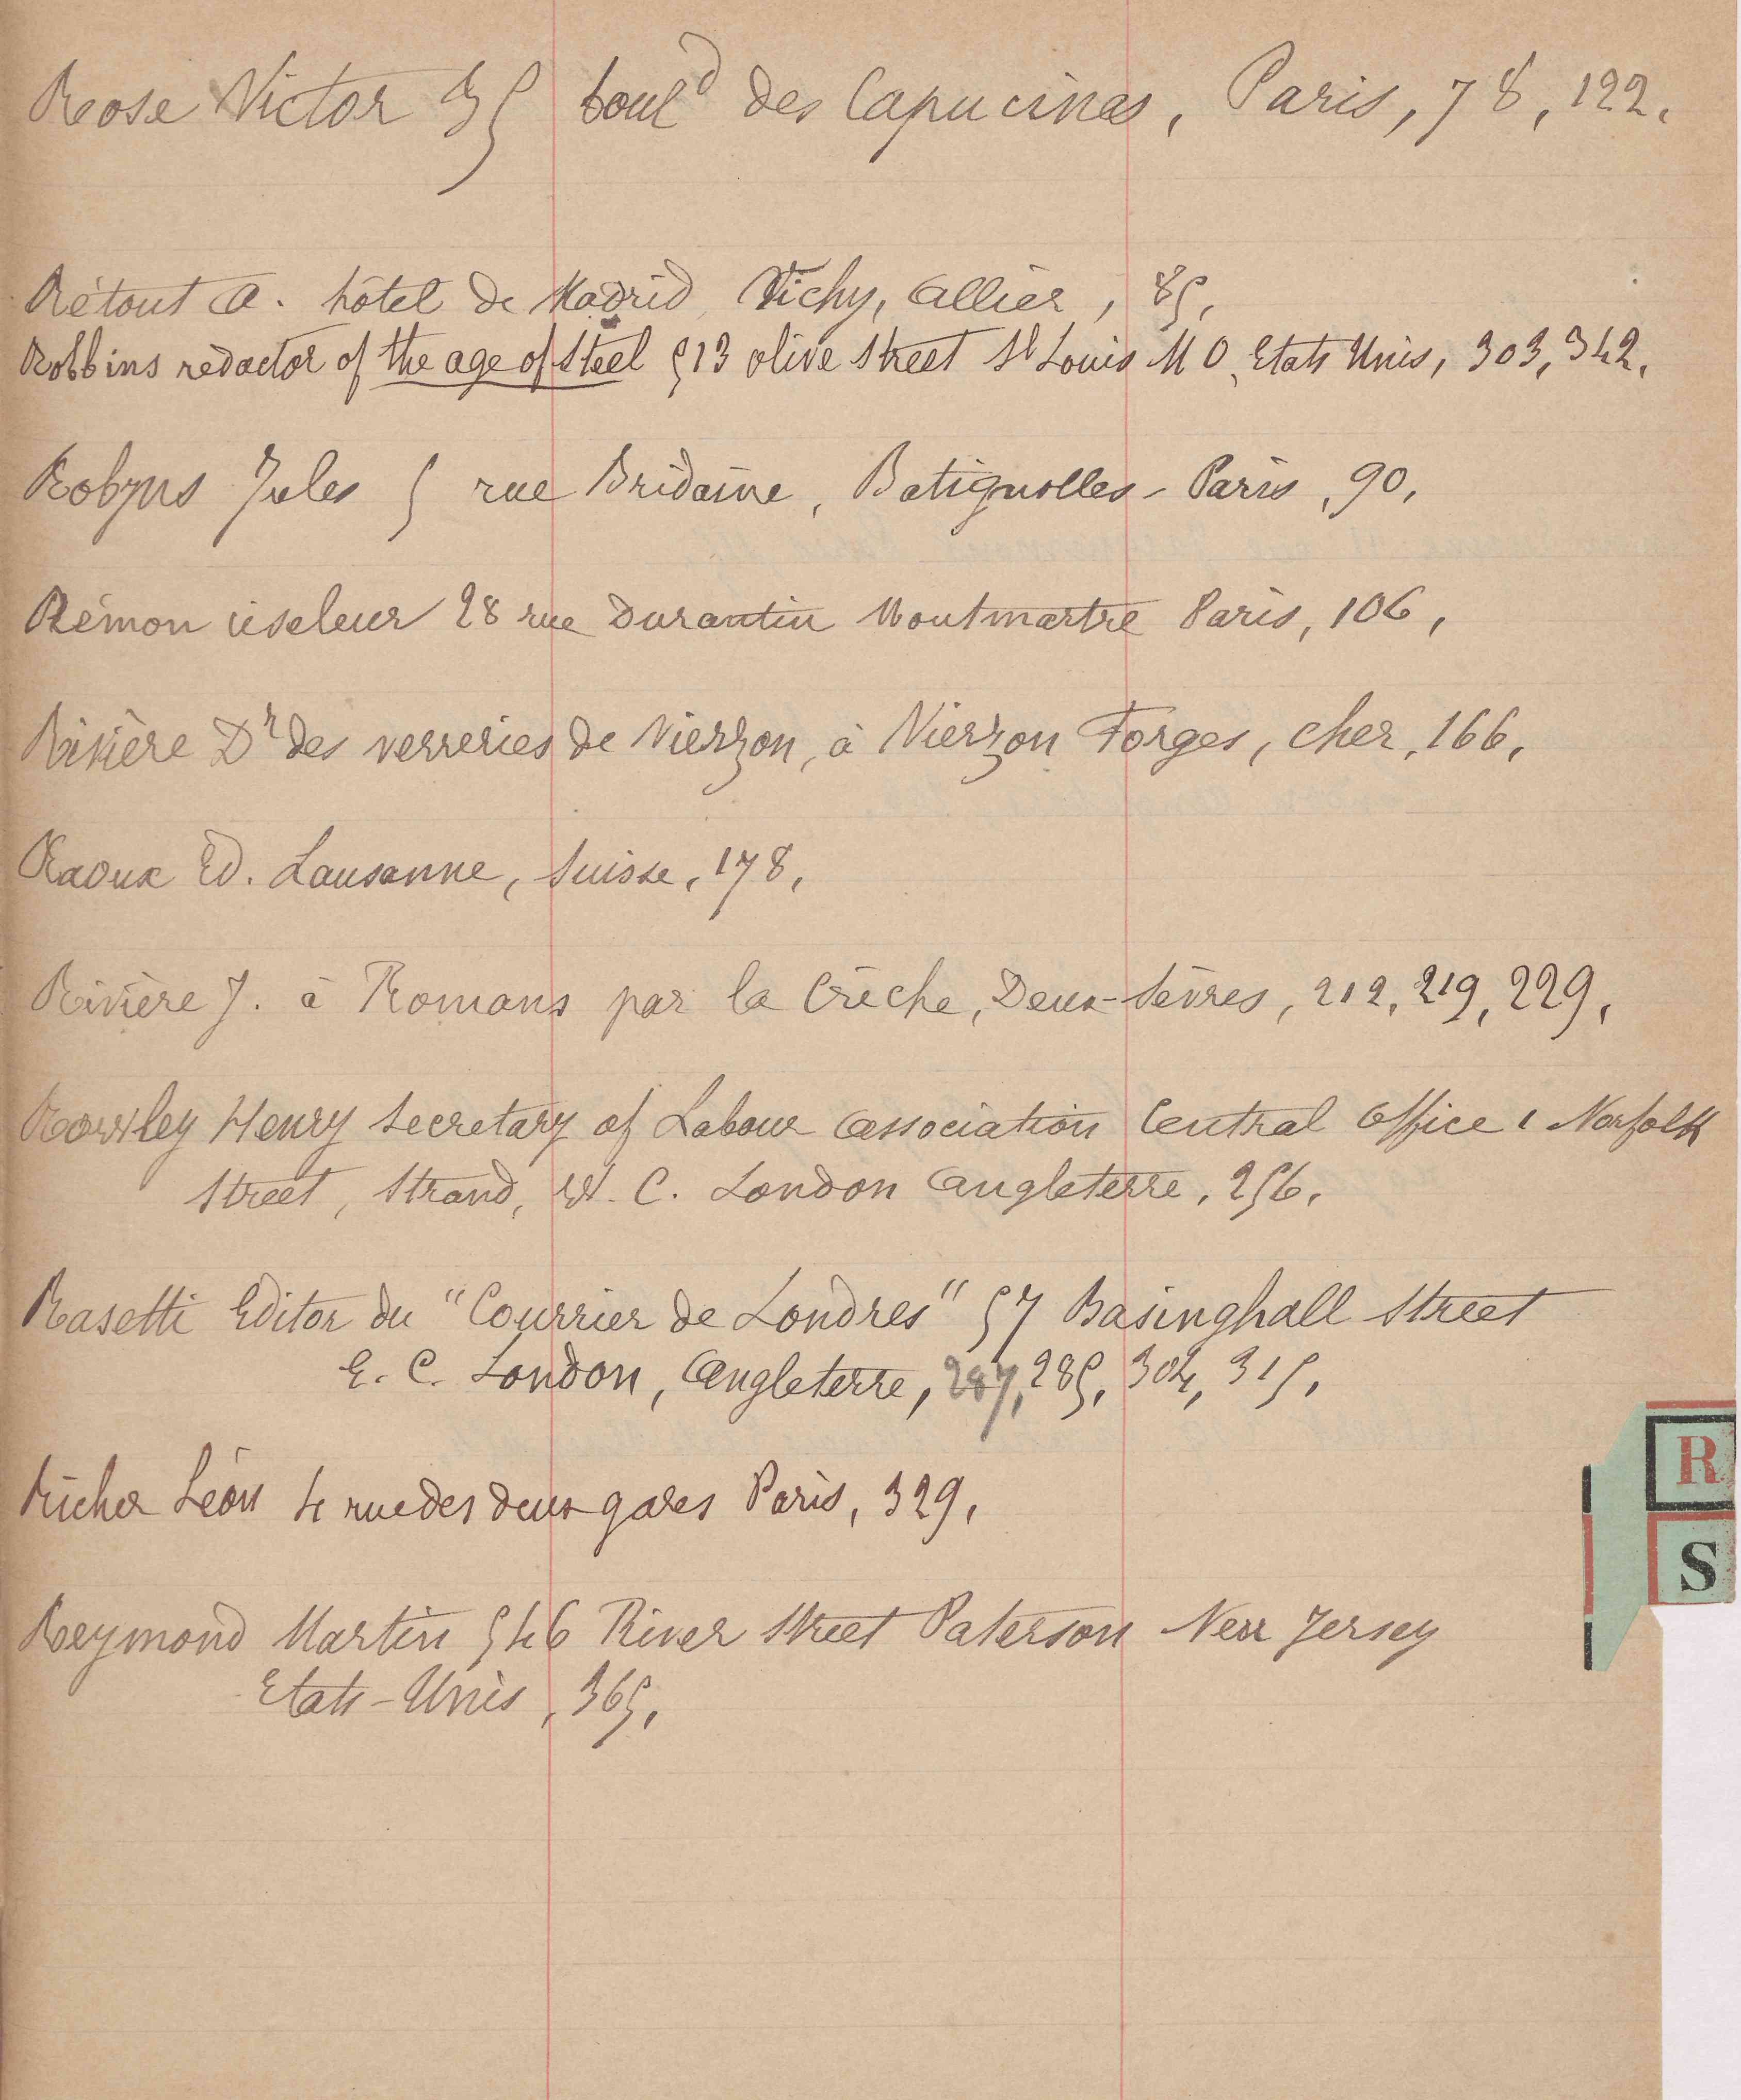 Rose Victor 35 boulᵈ des Capucines, Paris, 78, 122.
Rétout A. hôtel de Madrid, Vichy, Allier, 85,
Robbins redactor of the age of steel 513 olive street Sᵗ Louis M O, Etats Unis, 303, 342.
Robyns Jules 5 rue Bridaine, Batignolles-Paris, 90,
Rémon ciseleur 28 rue Durantin Montmartre Paris, 106,
Rivière Dʳ des verreries de Vierzon, à Vierzon Forges, Cher, 166,
Raoux Ed. Lausanne, Suisse, 178,
Rivière J. à Romans par la Crèche, Deux-Sèvres, 212, 219, 229,
Rowley Henry Secretary of Labour Association Central Office 1 Norfolk
Street, Strand, W. C. London Angleterre, 256,
Rasetti Editor du "Courrier de Londres" 57 Basinghall Street
E. C. London, Angleterre, 287, 285, 304, 315,
Richer Léon 4 rue des deux gares Paris, 329,
Reymond Martin 546 River Street Paterson New Jersey
Etats-Unis, 365,
R
S